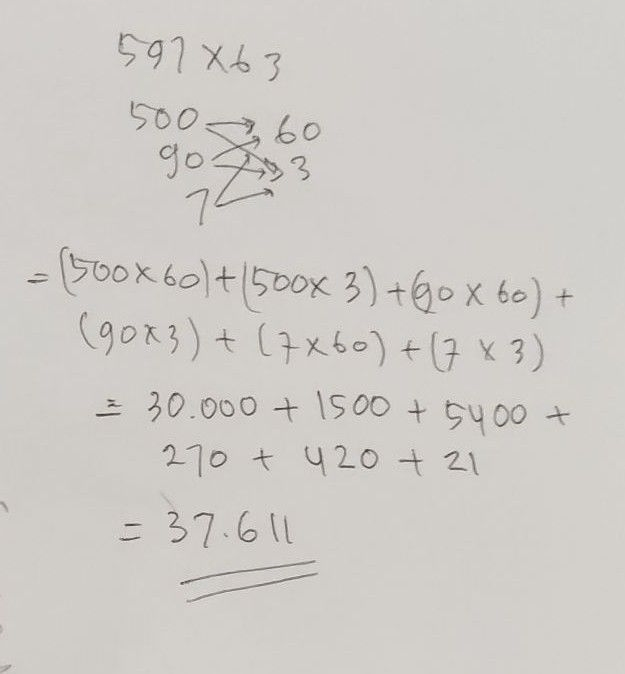 597 x 63
500 60
90 3
7
= (500 x 60) + (500 x 3) + (90 x 60) +
(90 x 3) + (7 x 60) + (7 x 3)
= 30.000 + 1500 + 5400 +
270 + 420 + 21
= 37.611